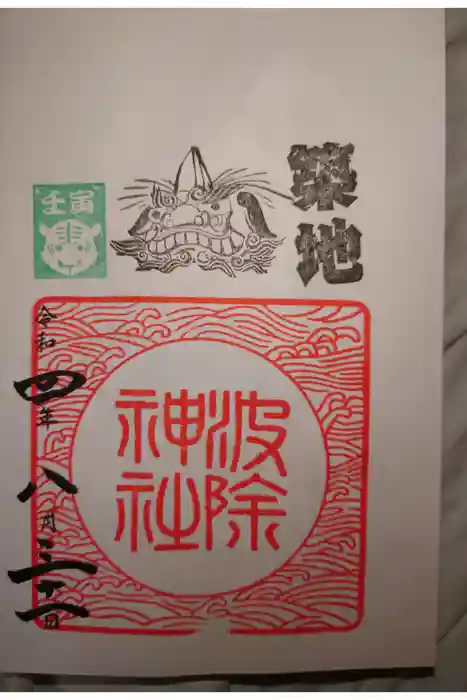 築地
壬寅
波除
神社
令和四年八月日